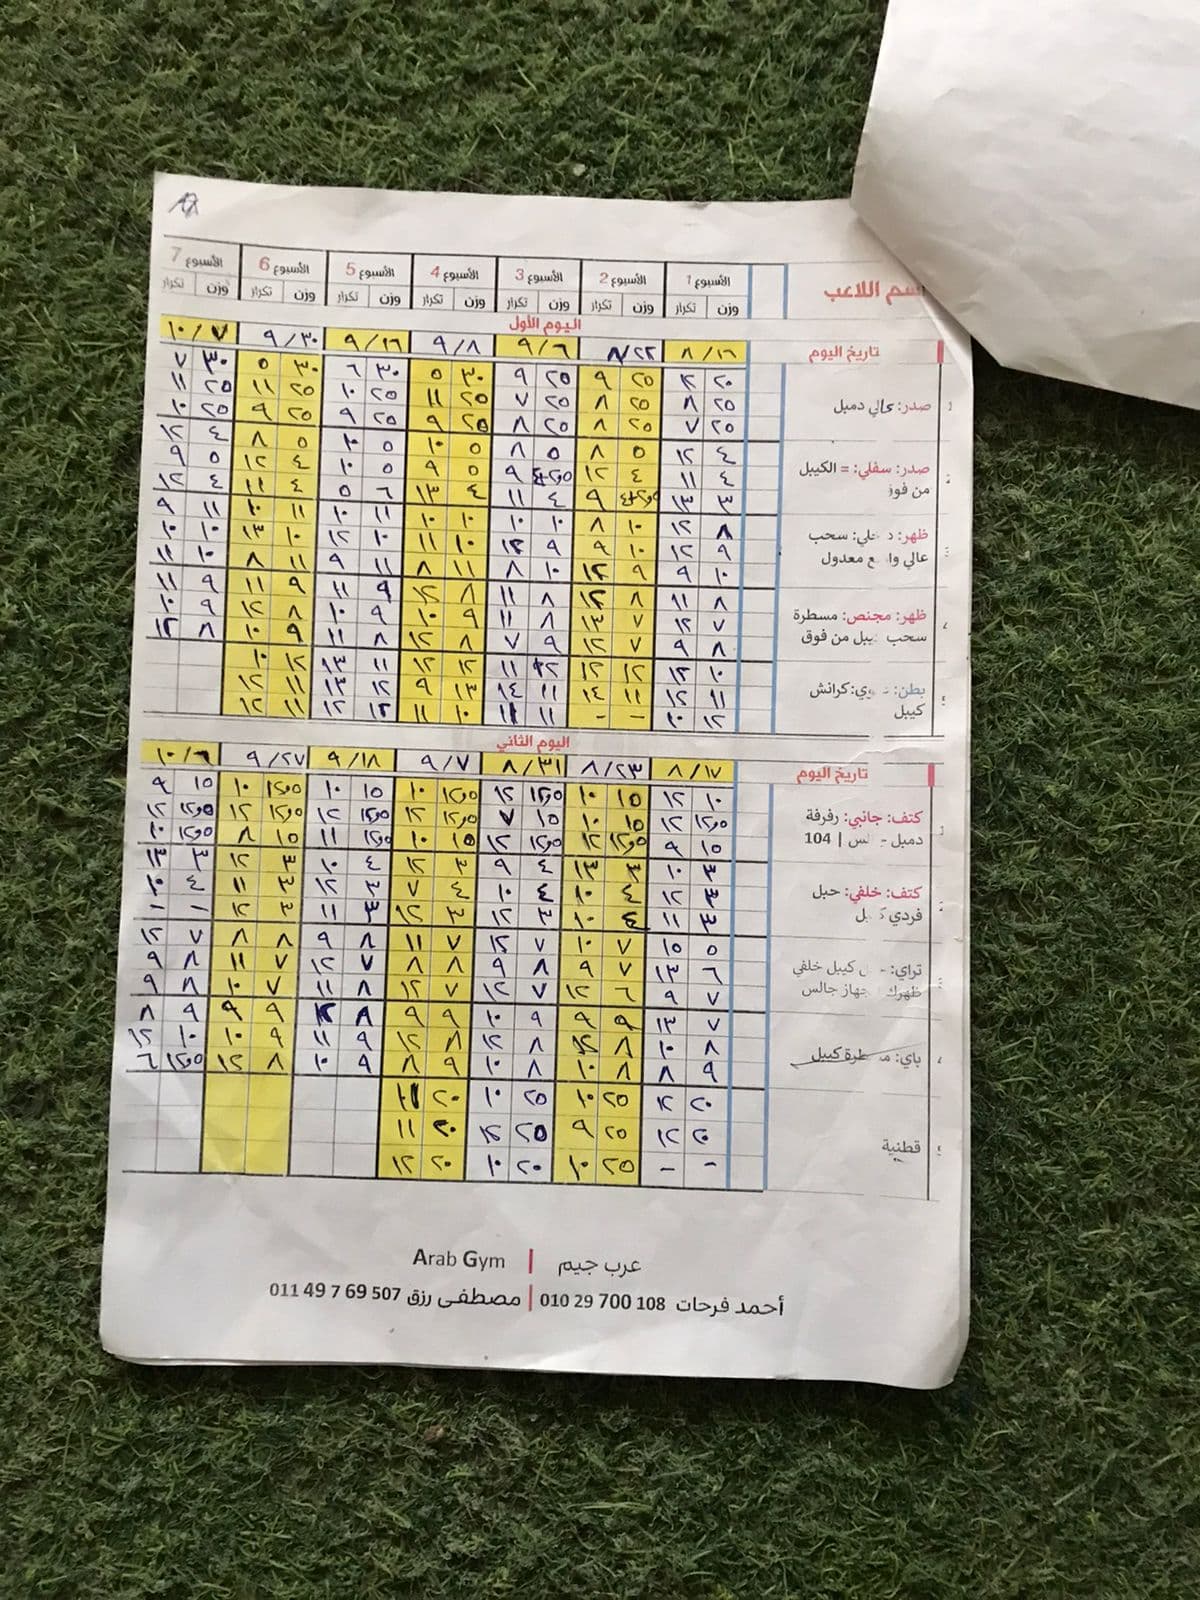 اسم اللاعب الأسبوع 1 الأسبوع 2 الأسبوع 3 الأسبوع 4 الأسبوع 5 الأسبوع 6 الأسبوع 7
وزن تكرار وزن تكرار وزن تكرار وزن تكرار وزن تكرار وزن تكرار وزن تكرار
اليوم الأول
تاريخ اليوم ٨/١٦ ٨/٢٢ ٩/٦ ٩/٨ ٩/١٦ ٩/٣٠ ١٠/٧
صدر: عالي دمبل
٢٠ ١٢ ٢٥ ٩ ٢٥ ٩ ٣٠ ٥ ٣٠ ٦ ٣٠ ٥ ٣٠ ٧
٢٥ ٨ ٢٥ ٨ ٢٥ ٧ ٢٥ ١١ ٢٥ ١٠ ٢٥ ١١ ٢٥ ١١
٢٥ ٧ ٢٥ ٨ ٢٥ ٨ ٢٥ ٩ ٢٥ ٩ ٢٥ ٩ ٢٥ ١٠
صدر: سفلي: = الكيبل
من فوق
٤ ١٢ ٥ ٨ ٥ ٨ ٥ ١٠ ٥ ١٠ ٥ ٨ ٤ ١٢
٤ ١١ ٤ ١٢ ٩ ٥ ٩ ٥ ١٠ ٤ ١٢ ٥ ٩
٣ ١٣ ٩ ٤ ١١ ٤ ١٣ ٦ ٥ ٤ ١١ ٤ ١٢
ظهر: سحب
عالي معدول
٨ ١٢ ١٠ ٨ ١٠ ١٠ ١٠ ١٠ ١١ ١٠ ١١ ١٠ ١١ ٩
٩ ١٢ ١٠ ٩ ٩ ١٢ ١٠ ١١ ١٠ ١٢ ١٠ ١٣ ١٠ ١٠
١٠ ٩ ٩ ١٢ ١٠ ٨ ١١ ٨ ١١ ٩ ١١ ٨ ١٠ ١١
ظهر: مجنص: مسطرة
سحب من فوق
٨ ١١ ٨ ١٢ ٨ ١١ ٨ ١٢ ٩ ١١ ٩ ١١ ٩ ١١
٧ ١٢ ٧ ١٣ ٨ ١١ ٩ ١٠ ٩ ١٠ ٨ ١٢ ٩ ١٠
٨ ٩ ٧ ١٢ ٩ ٧ ٨ ١٢ ٨ ١١ ٩ ١٠ ٨ ١٢
بطن: كرانش
كيبل
١٠ ١٢ ١٢ ١٢ ١٢ ١١ ١٢ ١٢ ١١ ١٣ ١٢ ١٠
١١ ١٢ ١١ ١٤ ١١ ١٤ ١٣ ٩ ١٢ ١٣ ١١ ١٢
١٢ ١٠ - - ١١ ١١ ١٠ ١١ ١٢ ١٢ ١١ ١٢
اليوم الثاني
تاريخ اليوم ٨/١٧ ٨/٢٣ ٨/٣١ ٩/٧ ٩/١٨ ٩/٢٧ ١٠/٦
كتف: جانبي: رفرفة
دمبل 104
١٠ ١٢ ١٥ ١٠ ١٢٫٥ ١٢ ١٢٫٥ ١٠ ١٥ ١٠ ١٢٫٥ ١٠ ١٥ ٩
١٢٫٥ ١٢ ١٥ ١٠ ١٥ ٧ ١٢٫٥ ١٢ ١٢٫٥ ١٢ ١٢٫٥ ١٢ ١٢٫٥ ١٢
١٥ ٩ ١٢٫٥ ١٢ ١٢٫٥ ١٢ ١٥ ١٠ ١٢٫٥ ١١ ١٥ ٨ ١٢٫٥ ١٠
كتف: خلفي: حبل
فردي
٣ ١٠ ٣ ١٣ ٤ ٩ ٣ ١٢ ٤ ١٠ ٣ ١٢ ٣ ١٣
٣ ١٢ ٤ ١٠ ٤ ١٠ ٤ ٧ ٣ ١٢ ٣ ١١ ٤ ١٠
٣ ١١ ٤ ١٠ ٣ ١٢ ٣ ١٢ ٣ ١١ ٣ ١٢ - -
تراي: كيبل خلفي
ظهرك جهاز جالس
٥ ١٥ ٧ ١٠ ٧ ١٢ ٧ ١١ ٨ ٩ ٨ ٨ ٧ ١٢
٦ ١٣ ٧ ٩ ٨ ٩ ٨ ٨ ٧ ١٢ ٧ ١١ ٨ ٩
٧ ٩ ٦ ١٢ ٧ ١٢ ٧ ١٢ ٨ ١١ ٧ ١٠ ٨ ٩
باي: مسطرة كيبل
٧ ١٣ ٩ ٩ ٩ ١٠ ٩ ٩ ٨ ١٢ ٩ ٩ ٩ ٨
٨ ١٠ ٨ ١٢ ٨ ١٢ ٨ ١٢ ٩ ١١ ٩ ١٠ ١٠ ١٢
٩ ٨ ٨ ١٠ ٨ ١٠ ٩ ٨ ٩ ١٠ ٨ ١٢ ١٢٫٥ ٦
قطنية
٢٠ ١٢ ٢٥ ١٠ ٢٥ ١٠ ٢٠ ١١
٢٠ ١٢ ٢٥ ٩ ٢٥ ١٢ ٢٠ ١١
- - ٢٥ ١٠ ٢٠ ١٠ ٢٠ ١٢
عرب جيم | Arab Gym
أحمد فرحات 010 29 700 108 | مصطفى رزق 011 49 7 69 507